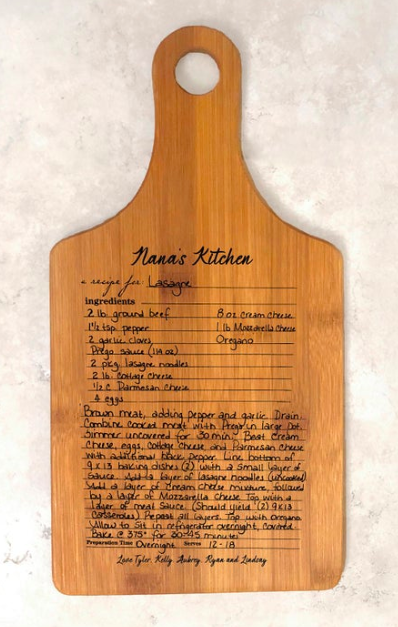 Nana's Kitchen
a recipe for: Lasagne
ingredients
2 lb. ground beef 8 oz cream cheese
1½ tsp. pepper 1 lb Mozzarella cheese
2 garlic cloves Oregano
Prego sauce (114 oz)
2 pkg. lasagne noodles
2 lb. Cottage cheese
½ C Parmesan cheese
4 eggs
Brown meat, adding pepper and garlic. Drain.
Combine cooked meat with Prego in large pot.
Simmer uncovered for 30 min. Beat Cream
Cheese, eggs, Cottage Cheese, and Parmesan Cheese
with additional black pepper. Line bottom of
9x13 baking dishes (2) with a small layer of
Sauce. Add a layer of lasagna noodles (uncooked)
Add a layer of Cream cheese mixture, followed
by a layer of Mozzarella cheese. Top with a
layer of meat sauce. (Should yield (2) 9x13
Casseroles) Repeat all layers. Top with oregano
Allow to sit in refrigerator overnight, covered.
Bake @ 375° for 30-45 minutes
Preparation Time Overnight Serves 12-18
Love Tyler, Kelly, Aubrey, Ryan and Lindsay